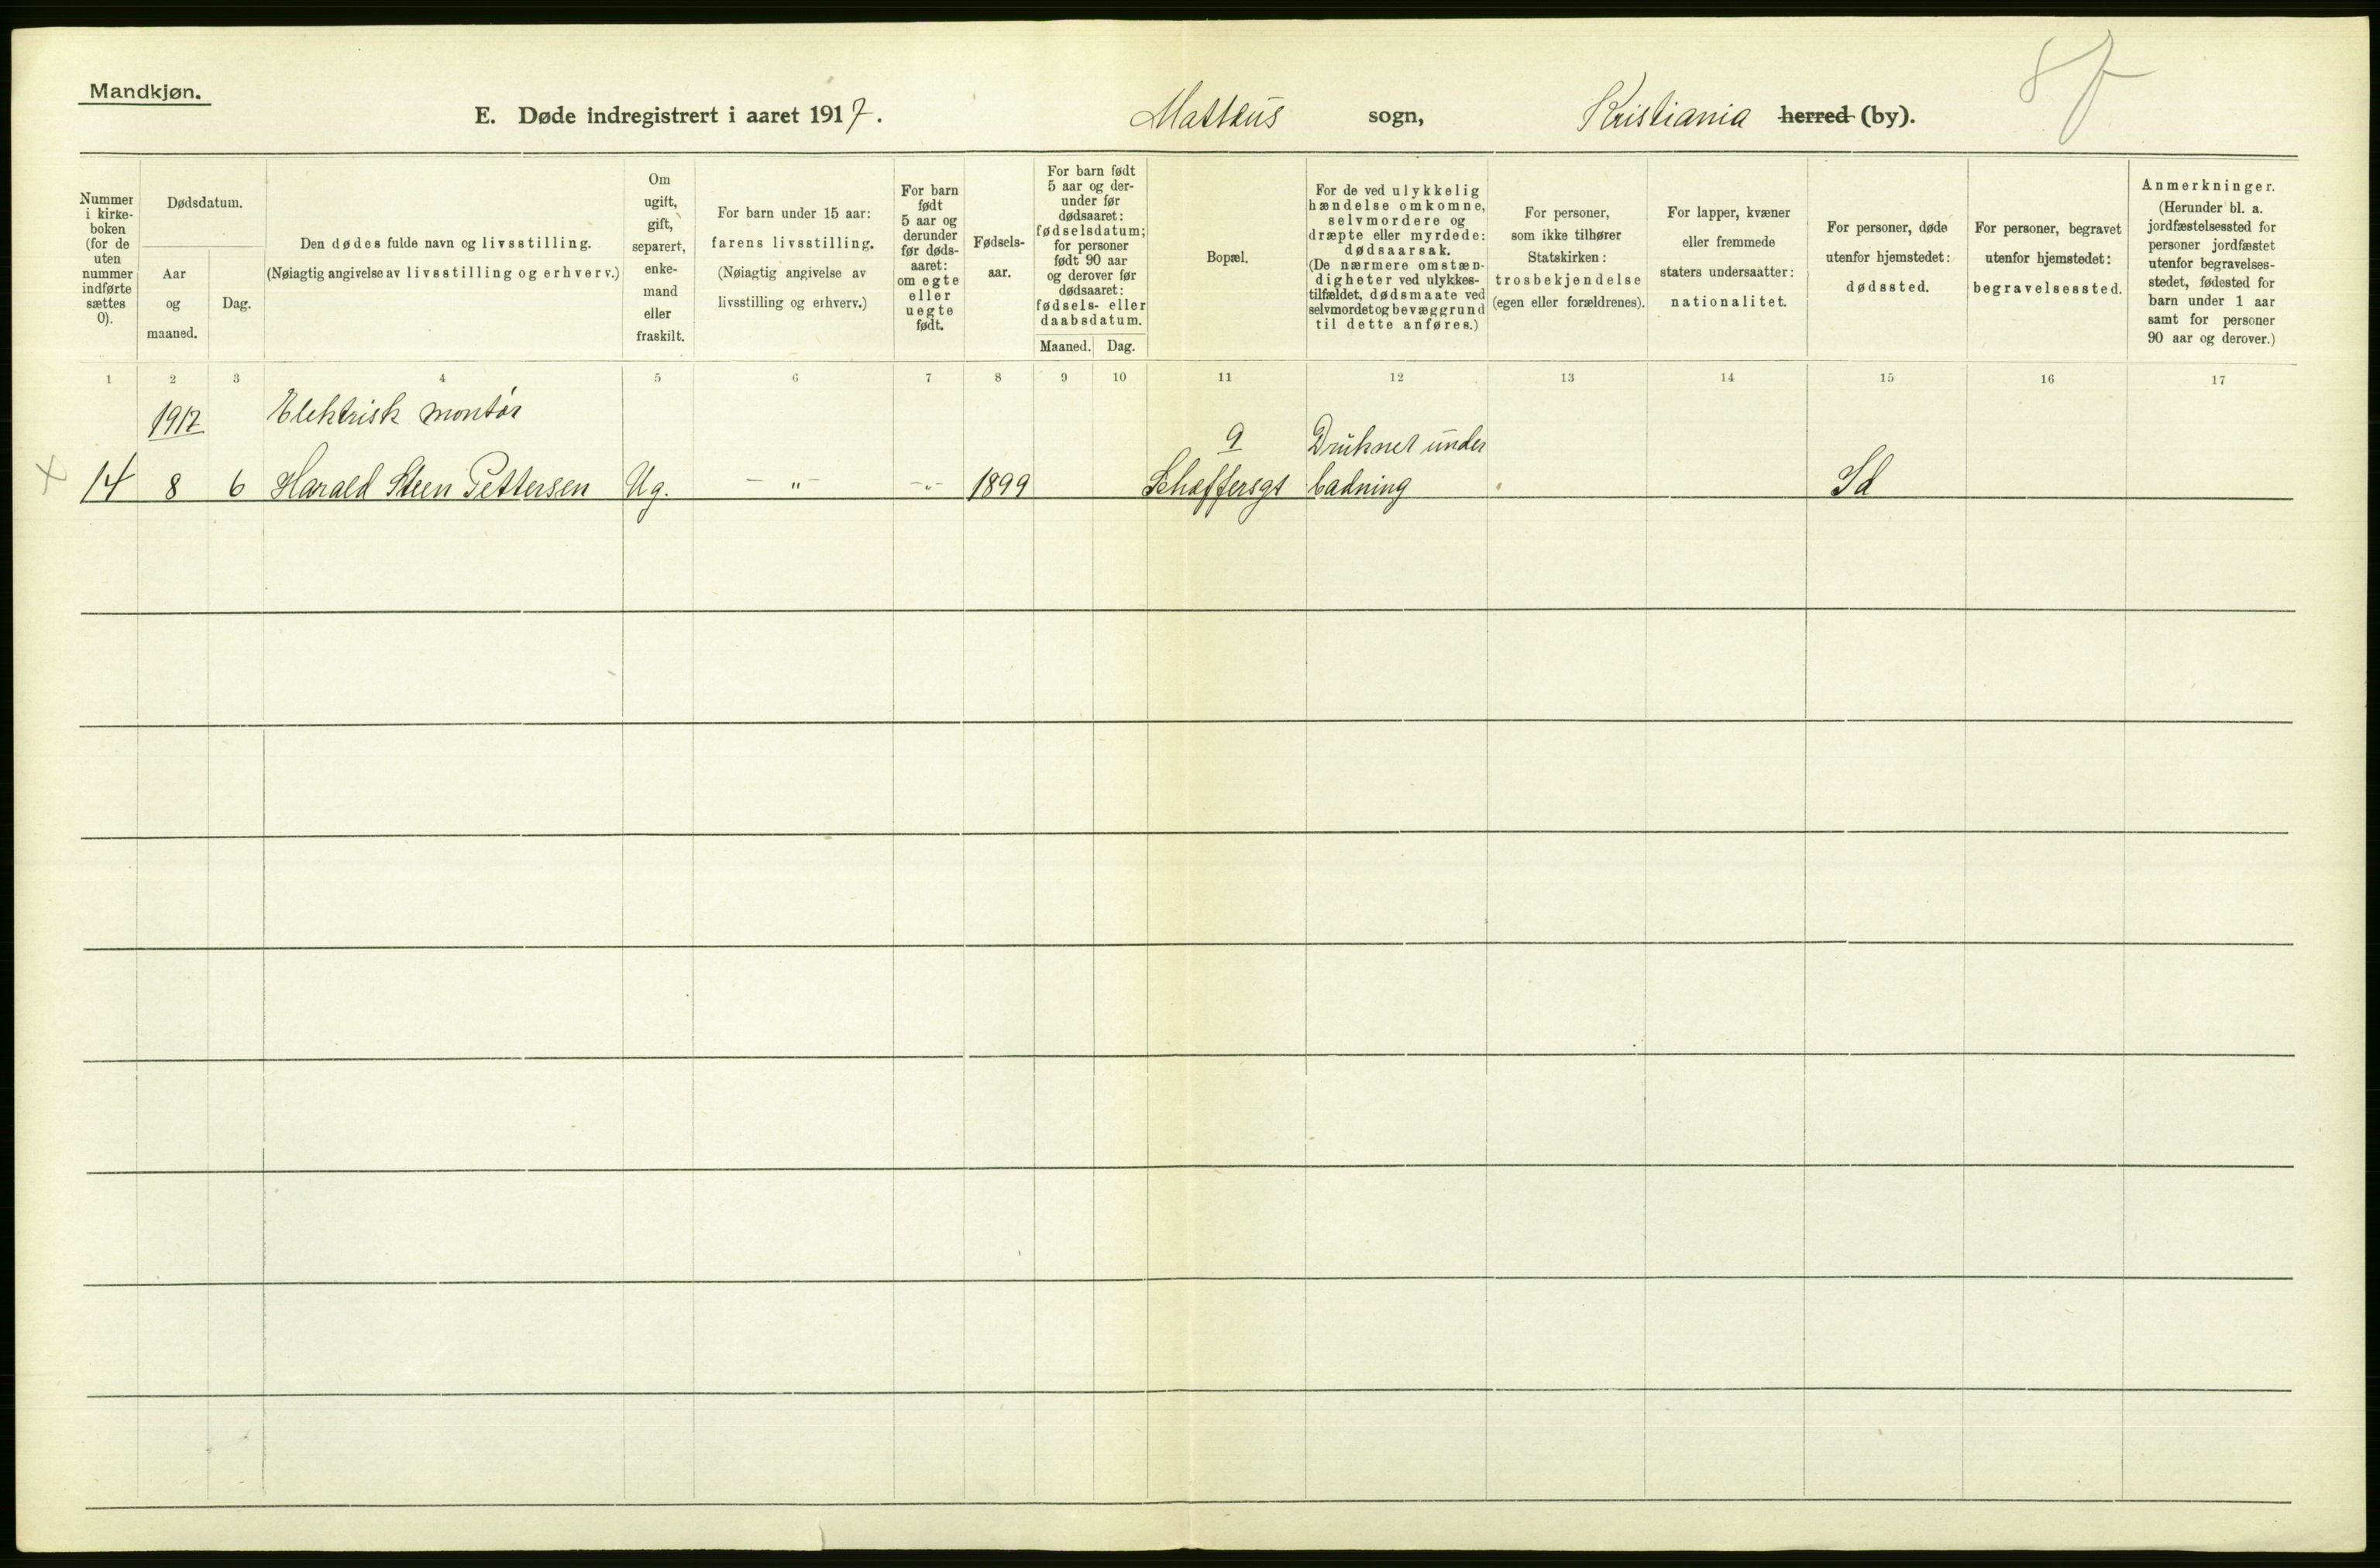 Mandkjøn.
E. Døde indregistrert i aaret 1917. Matteus sogn, Kristiania herred (by).
8
Nummer i kirke-boken (for de uten nummer indførte sættes 0).
Dødsdatum.
Aar og maaned.
Dag.
Den dødes fulde navn og livsstilling.
(Nøiagtig angivelse av livsstilling og erhverv.)
Om ugift, gift, separert, enke-mand eller fraskilt.
For barn under 15 aar:
farens livsstilling.
(Nøiagtig angivelse av
livsstilling og erhverv.)
For barn født 5 aar og derunder før døds-aaret: om egte eller uegte født.
Fødsels-aar.
For barn født 5 aar og der-under før dødsaaret: fødselsdatum; for personer født 90 aar og derover før dødsaaret: fødsels- eller daabsdatum.
Maaned. Dag.
Bopæl.
For de ved ulykkelig hændelse omkomne, selvmordere og dræpte eller myrdede: dødsaarsak. (De nærmere omstæn-digheter ved ulykkes-tilfældet, dødsmaate ved selvmordet og bevæggrund til dette anføres.)
For personer, som ikke tilhører Statskirken: trosbekjendelse (egen eller forældrenes).
For lapper, kvæner eller fremmede staters undersaatter: nationalitet.
For personer, døde utenfor hjemstedet: dødssted.
For personer, begravet utenfor hjemstedet: begravelsessted.
Anmerkninger. (Herunder bl. a. jordfæstelsessted for personer jordfæstet utenfor begravelses-stedet, fødested for barn under 1 aar samt for personer 90 aar og derover.)
1 2 3 4 5 6 7 8 9 10 11 12 13 14 15 16 17
1917 Elektrisk montør
9 Druknet under
x 14 8 6 Harald Steen Pettersen Ug. - " - - " - 1899 Schæffersgt badning Sd